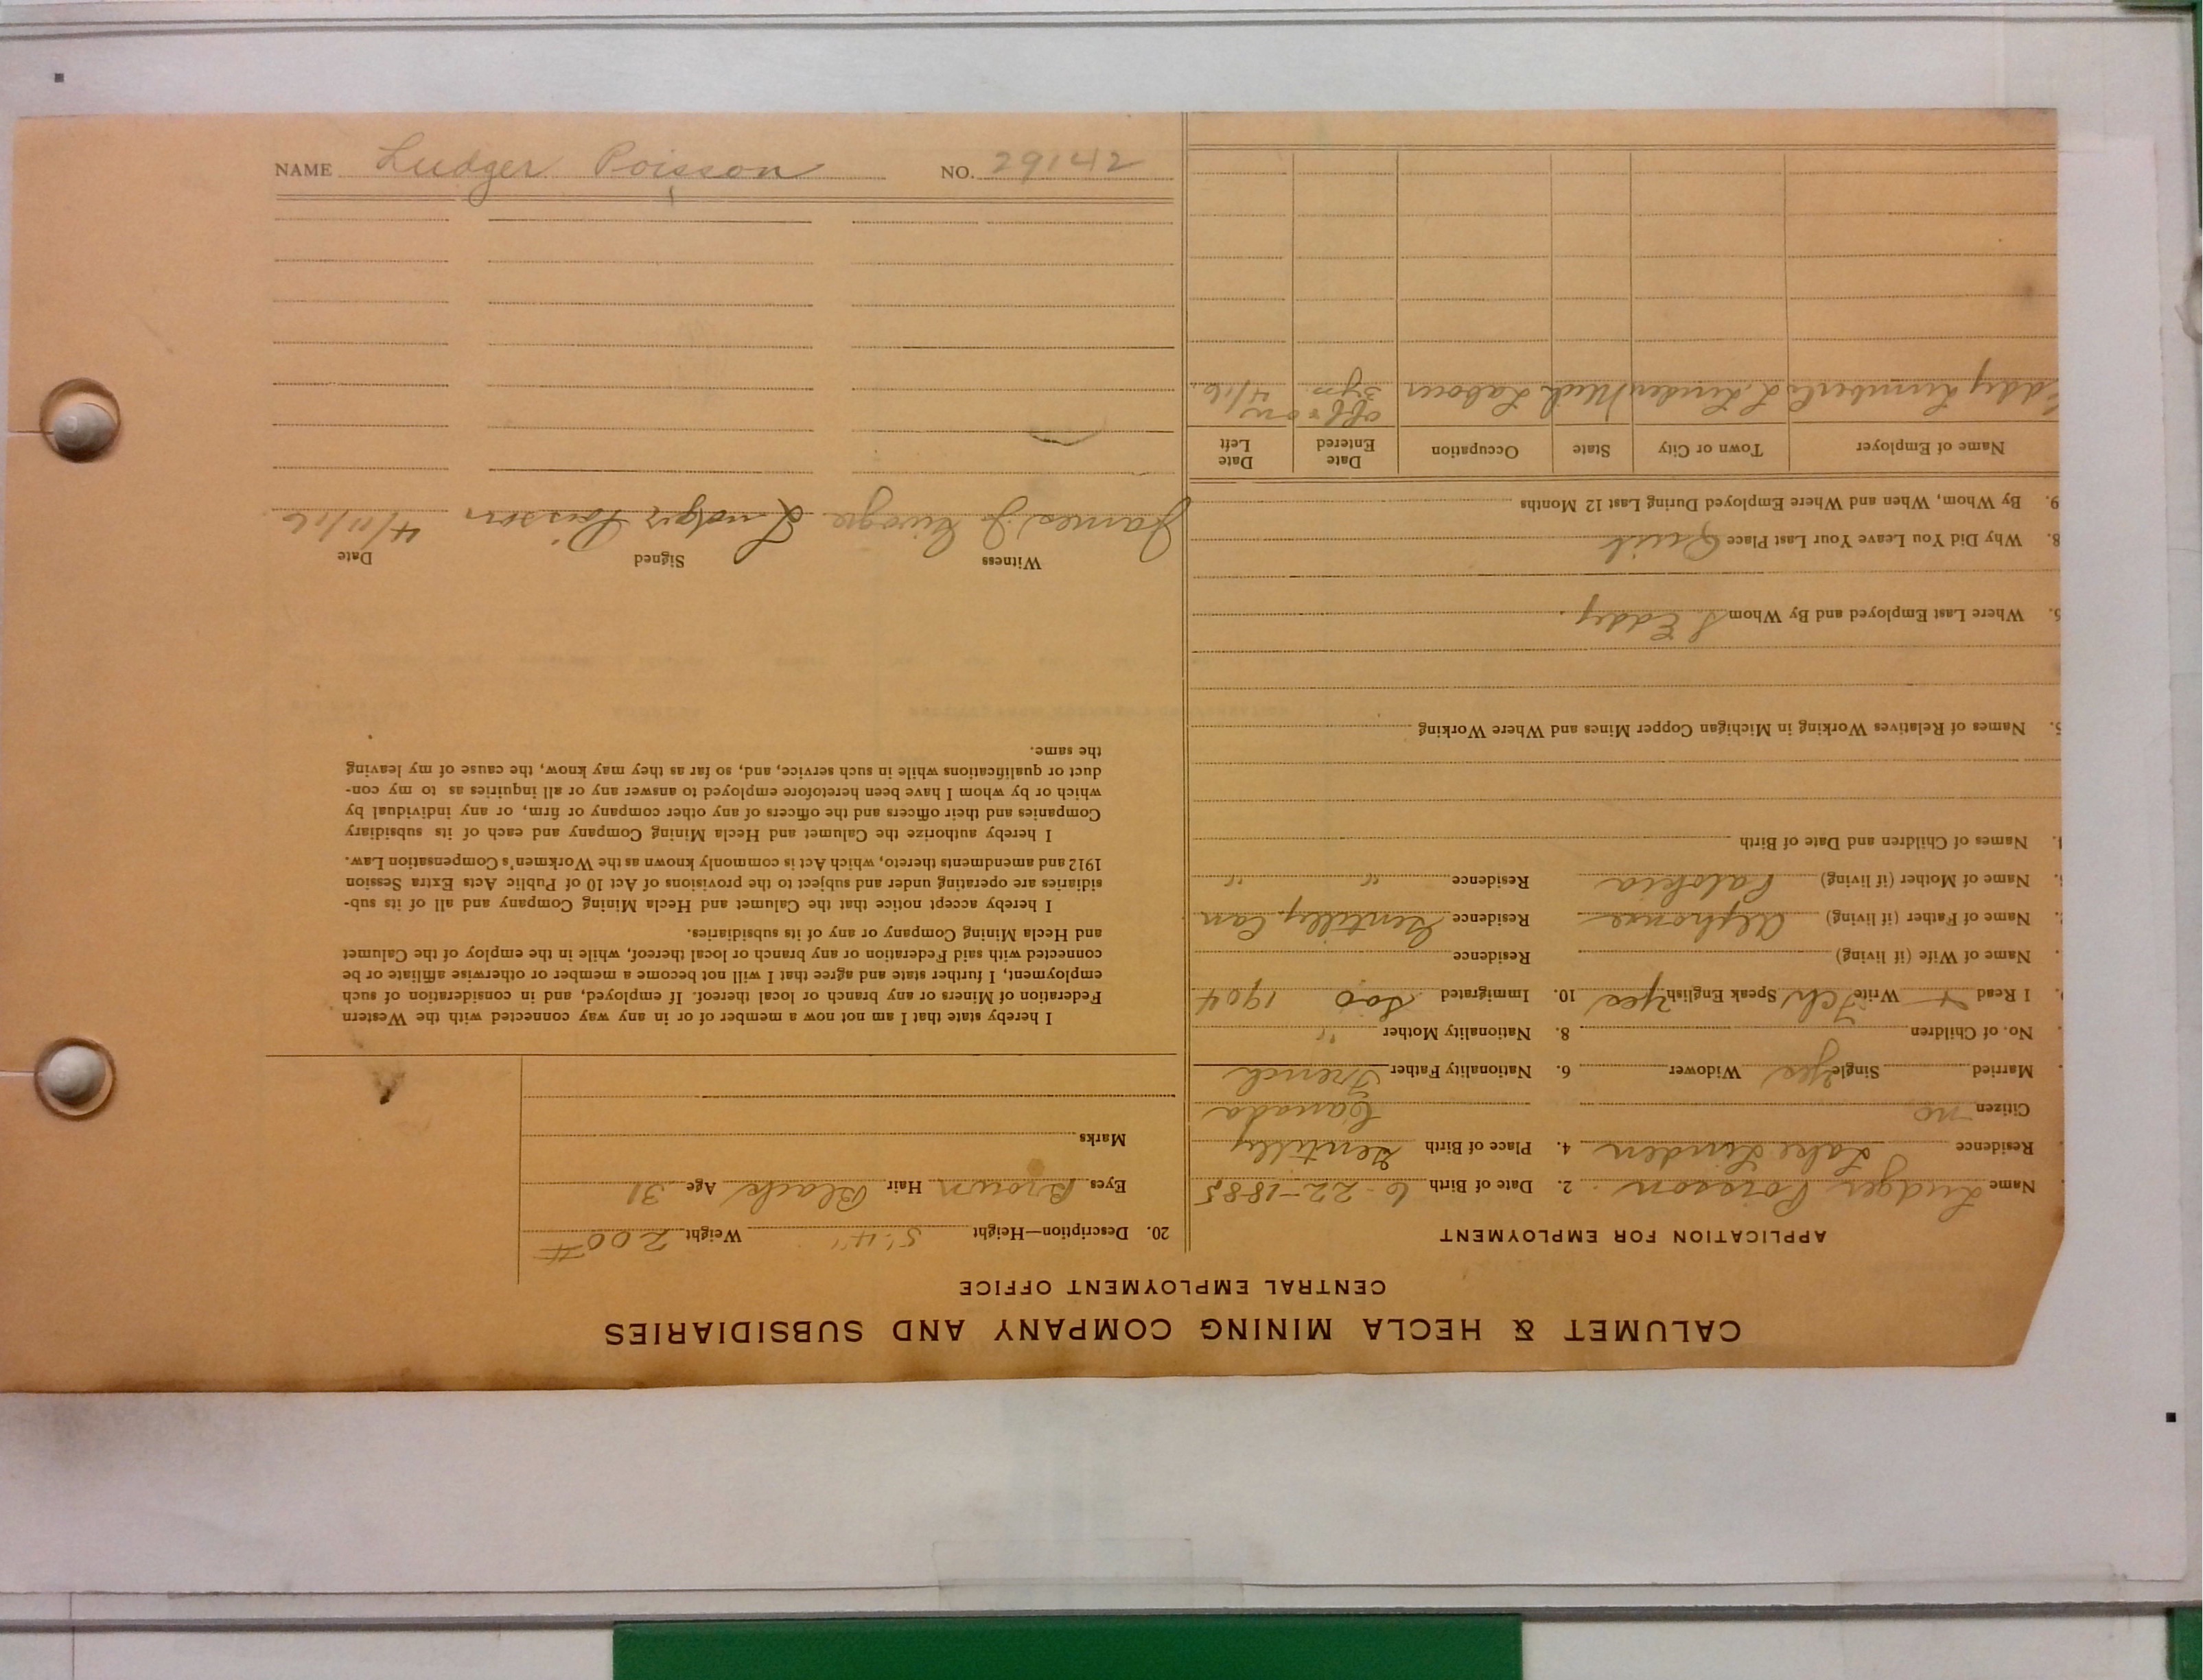 CALUMET & HECLA MINING COMPANY AND SUBSIDIARIES
CENTRAL EMPLOYMENT OFFICE
APPLICATION FOR EMPLOYMENT
Name Ludger Poisson 2. Date of Birth 6-22-1885
Residence Lake Linden 4. Place of Birth Gentilly
Citizen no Canada
Married Single Yes Widower 6. Nationality Father French
No. of Children 8. Nationality Mother "
I Read + Write Fch Speak English Yes 10. Immigrated Soo 1904
Name of Wife (if living) Residence
Name of Father (if living) Alphonse Residence Gentilly Can
Name of Mother (if living) Residence " "
Names of Children and Date of Birth
5. Names of Relatives Working in Michigan Copper Mines and Where Working
Where Last Employed and By Whom J. Eddy.
8. Why Did You Leave Your Last Place Quit
9. By Whom, When and Where Employed During Last 12 Months
Name of Employer Town or City State Occupation Date Entered Date Left
Eddy Lumber L. Linden Mich Labour off & on 3 yrs 4/16
20. Description—Height 5'.4" Weight 200 #
Eyes Brown Hair Black Age 31
Marks
I hereby state that I am not now a member of or in any way connected with the Western
Federation of Miners or any branch or local thereof. If employed, and in consideration of such
employment, I further state and agree that I will not become a member or otherwise affiliate or be
connected with said Federation or any branch or local thereof, while in the employ of the Calumet
and Hecla Mining Company or any of its subsidiaries.
I hereby accept notice that the Calumet and Hecla Mining Company and all of its sub-
sidiaries are operating under and subject to the provisions of Act 10 of Public Acts Extra Session
1912 and amendments thereto, which Act is commonly known as the Workmen's Compensation Law.
I hereby authorize the Calumet and Hecla Mining Company and each of its subsidiary
Companies and their officers and the officers of any other company or firm, or any individual by
which or by whom I have been heretofore employed to answer any or all inquiries as to my con-
duct or qualifications while in such service, and, so far as they may know, the cause of my leaving
the same.
Witness Signed Date
James J. Ludger Poisson 4/11/16
NAME Ludger Poisson NO. 29142